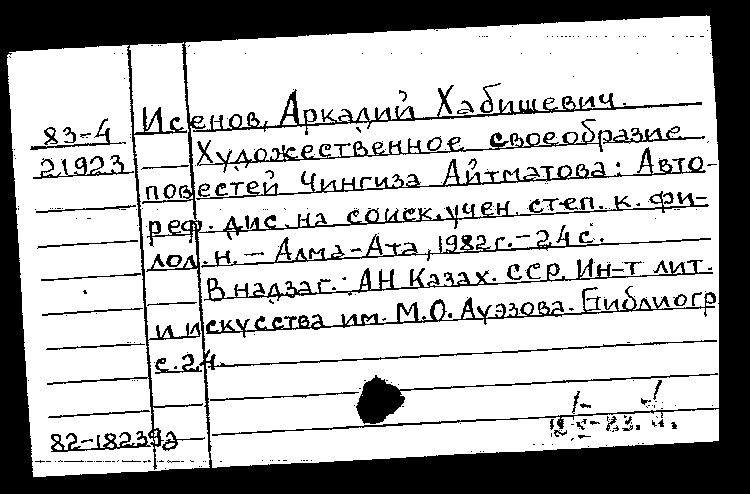 83-4
21923
Исенов, Аркадий Хабишевич.
Художественное своеобразие
повестей Чингиза Айтматова: Авто-
реф. дис. на соиск. учен. степ. к. фи-
лол. н. - Алма-Ата, 1982 г. - 24 с.
В надзаг.: АН Казах. ССР. Ин-т лит.
и искусства им. М.О. Ауэзова. Библиогр
с. 24.
82-18239а